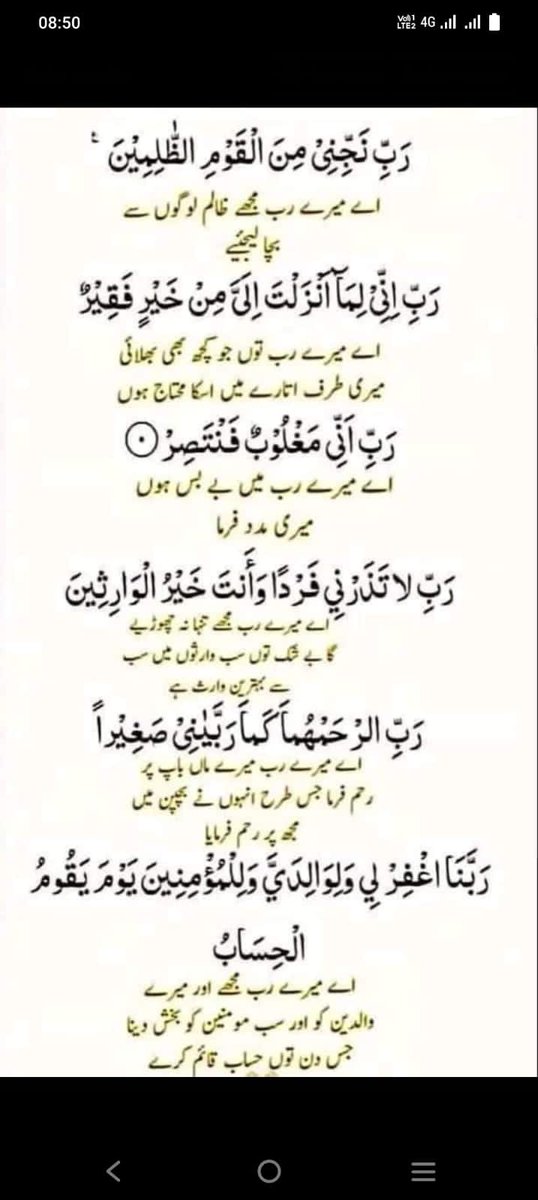 08:50
Vo) 1 LTE2 4G
رَبِّ نَجِّنِىْ مِنَ الْقَوْمِ الظّٰلِمِيْنَ
اے میرے رب مجھے ظالم لوگوں سے
بچا لیجئیے
رَبِّ اِنِّىْ لِمَآ اَنْزَلْتَ اِلَىَّ مِنْ خَيْرٍ فَقِيْرٌ
اے میرے رب توں جو کچھ بھی بھلائی
میری طرف اتارے میں اسکا محتاج ہوں
رَبِّ اَنِّىْ مَغْلُوْبٌ فَنْتَصِرْ
اے میرے رب میں بے بس ہوں
میری مدد فرما
رَبِّ لا تَذَرْنِي فَرْدًا وَأَنتَ خَيْرُ الْوَارِثِينَ
اے میرے رب مجھے تنہا نہ چھوڑیے
گا بے شک توں سب وارثوں میں سب
سے بہترین وارث ہے
رَبِّ الرْحَمْهُمَا كَمَا رَبَّيَانِىْ صَغِيْراً
اے میرے رب میرے ماں باپ پر
رحم فرما جس طرح انہوں نے بچپن میں
مجھ پر رحم فرمایا
رَبَّنَا اغْفِرْ لِي وَلِوَالِدَيَّ وَلِلْمُؤْمِنِينَ يَوْمَ يَقُومُ
الْحِسَابُ
اے میرے رب مجھے اور میرے
والدین کو اور سب مومنین کو بخش دینا
جس دن توں حساب قائم کرے